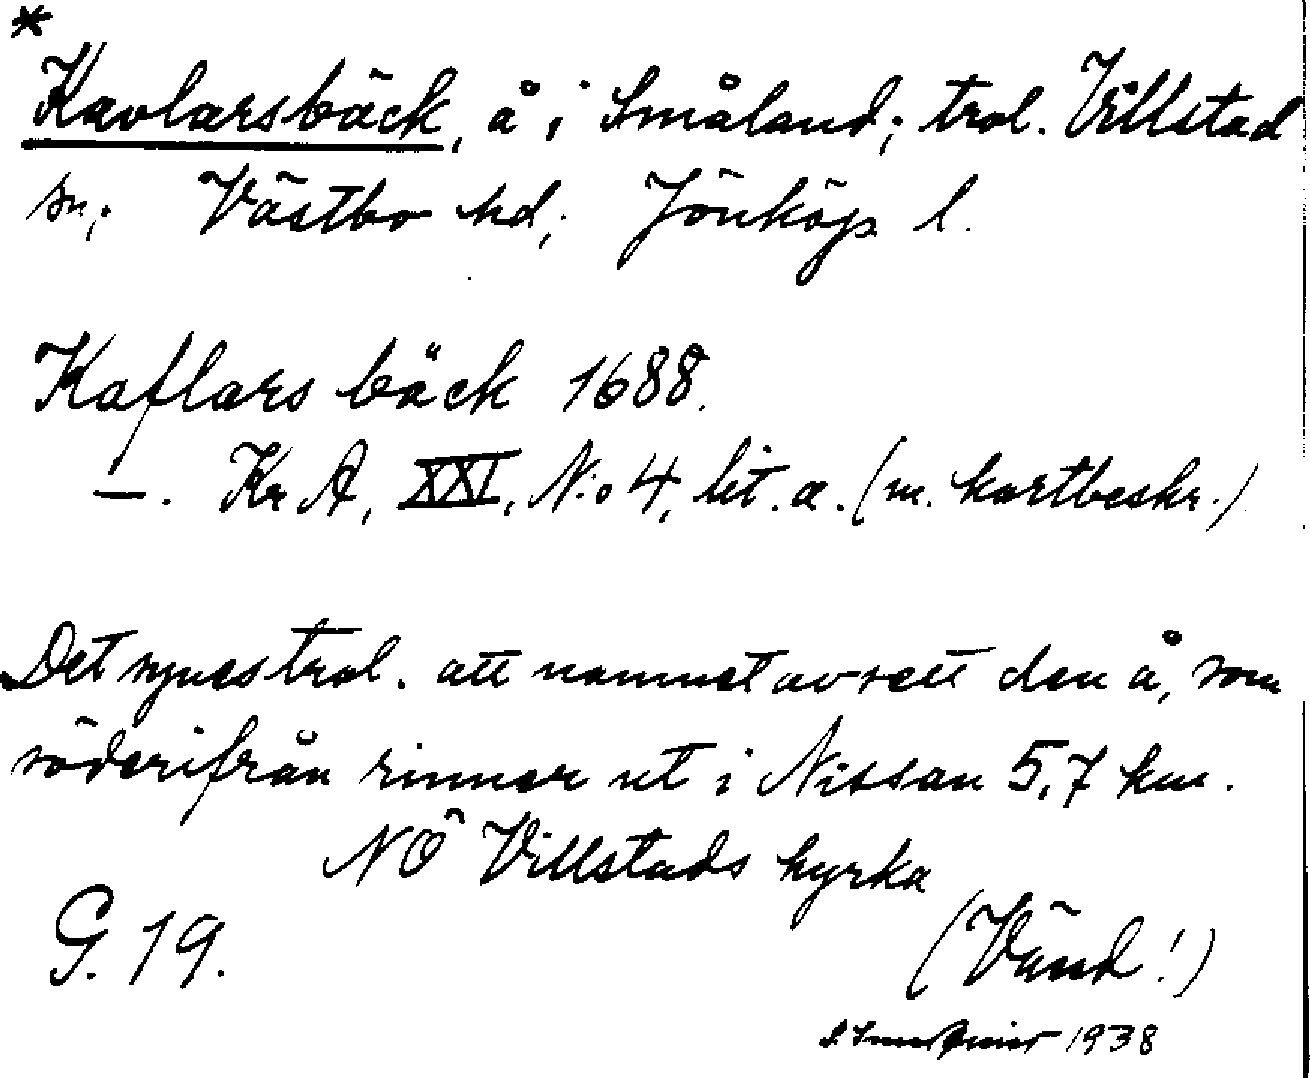 *
Kavlarsbäck, å i Småland; trol. Villstad
sn; Västbo hd; Jönköp. l.
Kaflars bäck 1688.
—. Kr A, XXI, N:o 4, lit. a. (m. kartbeskr.)
Det synes trol. att namnet avsett den å, som
söderifrån rinner ut i Nissan 5,7 km.
NÖ Villstads kyrka
G. 19.
(Vänd!)
1938